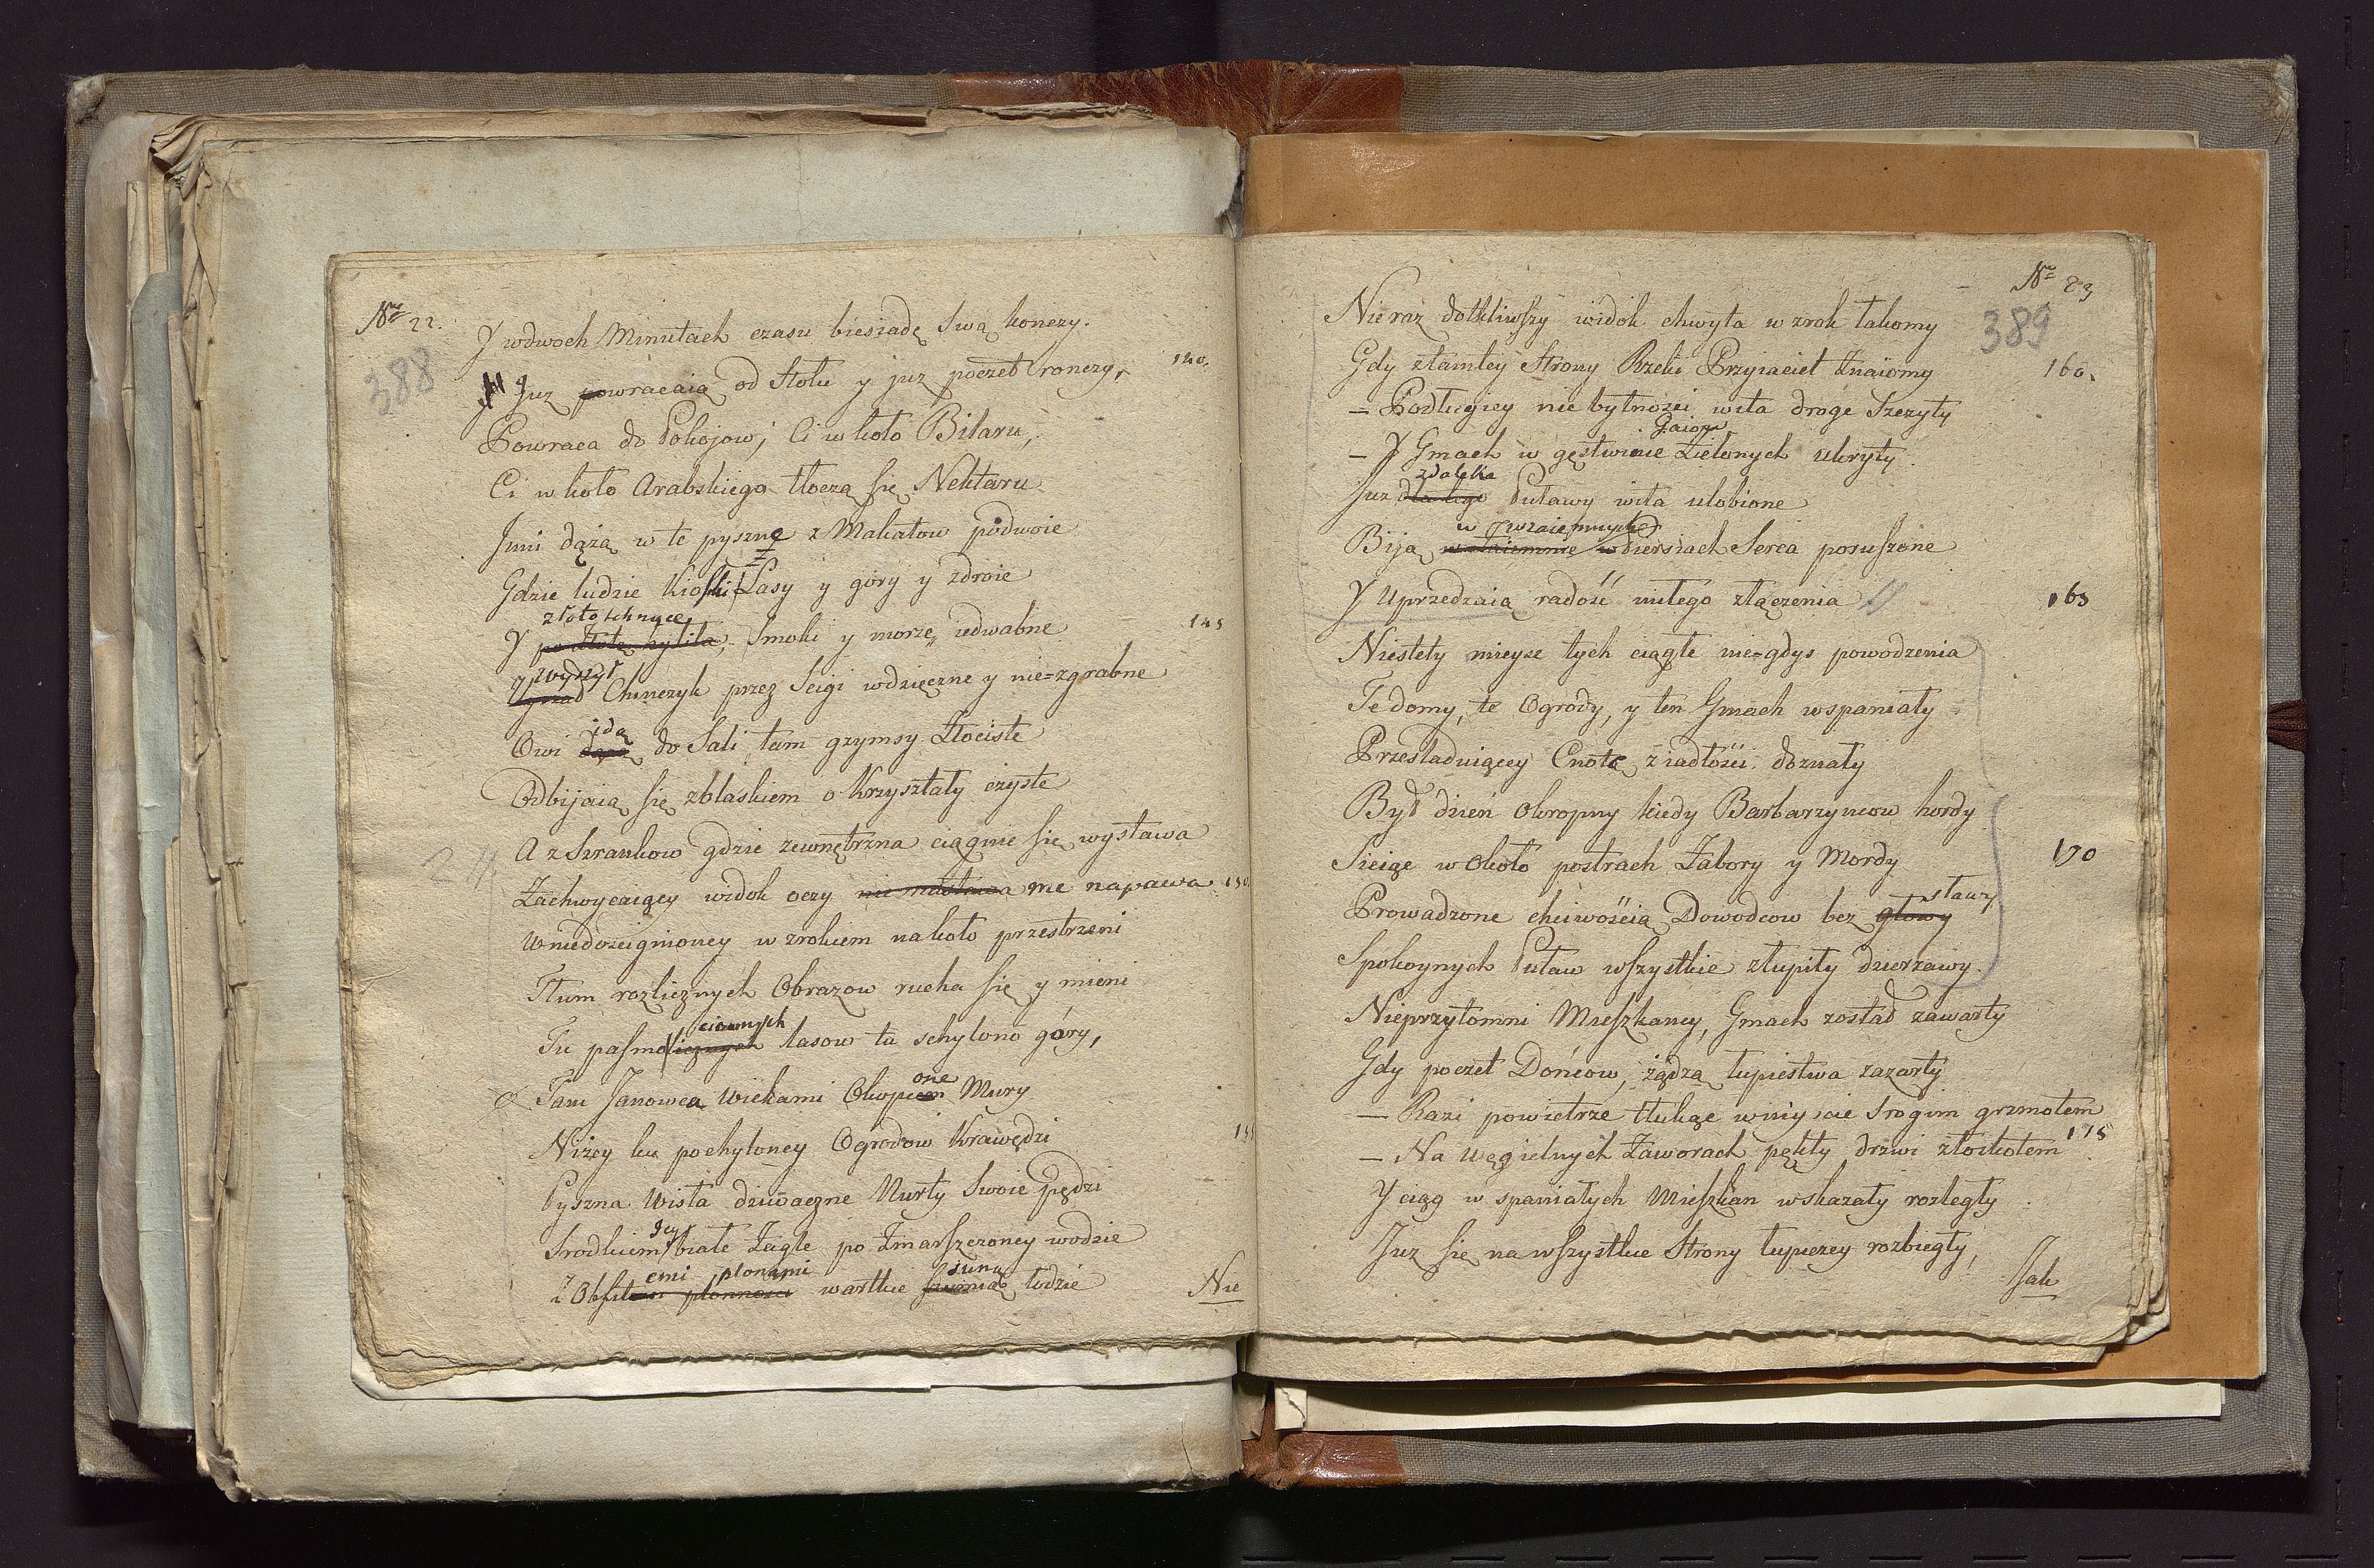 Nro 22.
388
Y wdwoch Minutach czasu biesiadę Swą konczy.
Juz powracaią od Stołu y juz poczet ronczy,
140.
Powraca do Pokojow; Ci w koło Bilaru,
Ci w koło Arabskiego tłoczą się Nektaru
Jnni dążą w te pyszne z Makatow podwoie
Gdzie ludzie Kioski Lasy y góry y zdroie
złotołchnące
Y po złotą kytita, Smoki y morze, iedwabne
145
zwydzył
Chinczyk przez Scigi wdzięczne y nie=zgrabne
idą
Owi dążą do Sali, tam gzymsy Złociste
Odbijaią się zblaskiem o Krzyształy czyste
A z Szrankow gdzie zewnętrzna ciągnie się wystawa
24
Zachwycaiący widok oczy me napawa
150
Wniedoścignioney wzrokiem nakoło przestrzeni
Tłum rozlicznych Obrazow rucha się y mieni
ciemnych
Tu pasmo licznych lasow tu schylone góry,
one
Tam Janowca Wiekami Okopcon Mury
Niżey ku pochyloney Ogrodow Krawędzi
155
Pyszna Wisła dziwaczne Nurty Swoie pędzi
Jey
Srodkiem białe Zagle po Zmarszczoney wodzie
emi plonami
suną
Z Obfite plonnosci wartkie suwaią łodzie
Nie
Nro 23
389
Nie raz dotkliwszy widok chwyta wzrok łakomy
Gdy ztamtey Strony Rzeki Przyiaciel Znaiomy
160.
– Podługiey nie bytności wita drogie Szczyty
Gaiow
– Y Gmach w gęstwinie Zielonych ukryty
zdaleka
Juz dla tego Puławy wita ulobione
w Zwzaiemnych
Biją w taiemnie w Piersiach Serca poruszone
Y Uprzedzaią radość miłego złączenia
165
Niestety mieysce tych ciągłe nie=gdys powodzenia
Te domy, te Ogrody, y ten Gmach wspaniały
Przesladuiącey Cnotę ziadłości doznały
Był dzień Okropny kiedy Barbarzyncow hordy
Sieiąc w Około postrach Zabory y Mordy
170
sławy
Prowadzone chciwością Dowodcow bez głowy
Spokoynych Puław wszystkie złupiły dzierżawy.
Nieprzytomni Mieszkancy, Gmach został zawarty
Gdy poczet Dońcow, żądzą łupiestwa zazarty
– Razi powietrze tłukąc wniyscie Srogim grzmotem
– Na Węgielnych Zaworach pękły drzwi złoskotem
175
Y ciąg w spaniałych Mieszkan wskazały rozległy
Juz się na wszystkie Strony łupiezcy rozbiegły,
Jak